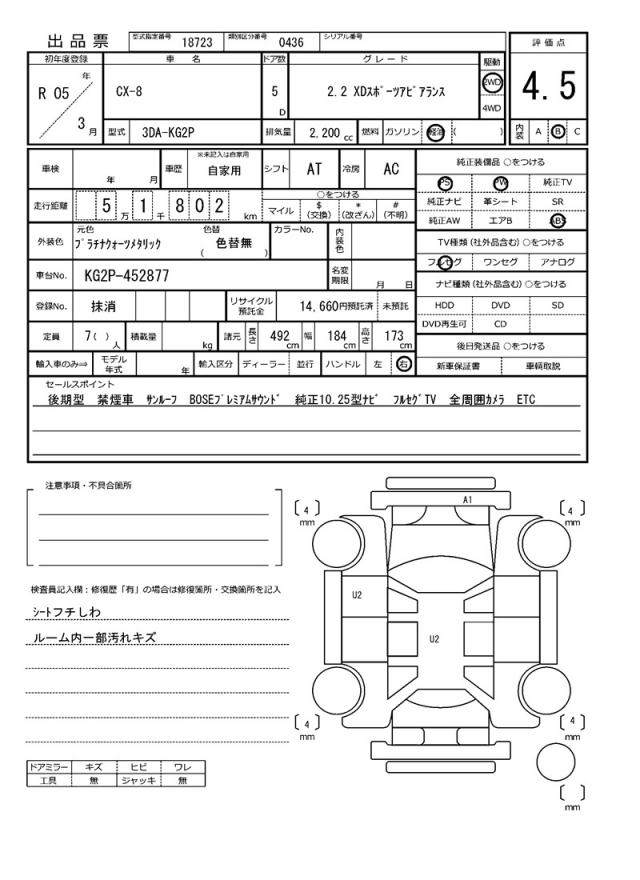 出品票 型式指定番号 18723 類別区分番号 0436 シリアル番号
評価点
4.5
内装 A B C
初年度登録 車名 ドア数 グレード 駆動
R 05 年 3 月
CX-8 5 D 2.2 XDスポーツアピアランス 2WD 4WD
型式 3DA-KG2P 排気量 2,200 cc 燃料 ガソリン 軽油 ( )
車検 年 月 車歴 ※未記入は自家用 自家用 シフト AT 冷房 AC
走行距離 5 万 1 千 8 0 2 km
○をつける
マイル $ (交換) * (改ざん) # (不明)
外装色 元色 プラチナクォーツメタリック 色替 ( 色替無 ) カラーNo. 内装色
車台No. KG2P-452877 名変期限 月 日
登録No. 抹消 リサイクル預託金 14,660円預託済 未預託
定員 7( )人 積載量 kg 諸元 長さ 492 cm 幅 184 cm 高さ 173 cm
輸入車のみ⇒ モデル年式 年 輸入区分 ディーラー 並行 ハンドル 左 右
純正装備品 ○をつける
PS PW 純正TV
純正ナビ 革シート SR
純正AW エアB ABS
TV種類(社外品含む)○をつける
フルセグ ワンセグ アナログ
ナビ種類(社外品含む)○をつける
HDD DVD SD
DVD再生可 CD
後日発送品 ○をつける
新車保証書 車輌取説
セールスポイント
後期型 禁煙車 サンルーフ BOSEプレミアムサウンド 純正10.25型ナビ フルセグTV 全周囲カメラ ETC
注意事項・不具合箇所
検査員記入欄:修復歴「有」の場合は修復箇所・交換箇所を記入
シートフチしわ
ルーム内一部汚れキズ
ドアミラー キズ ヒビ ワレ
工具 無 ジャッキ 無
A1
[ 4 ] mm
[ 4 ] mm
U2
U2
[ 4 ] mm
[ 4 ] mm
[ ] mm